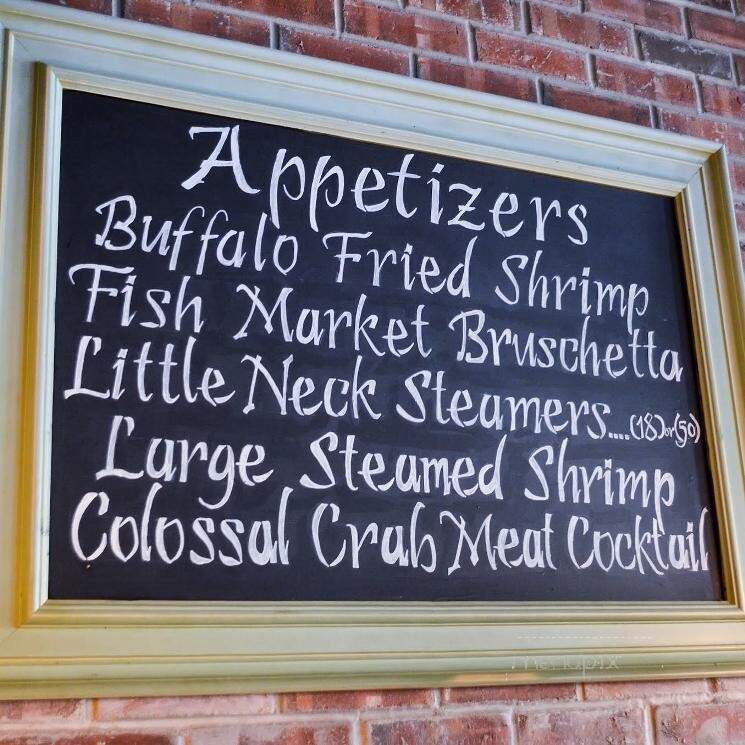 Appetizers
Buffalo Fried Shrimp
Fish Market Bruschetta
Little Neck Steamers....(18)or(50)
Large Steamed Shrimp
Colossal Crab Meat Cocktail
menupix